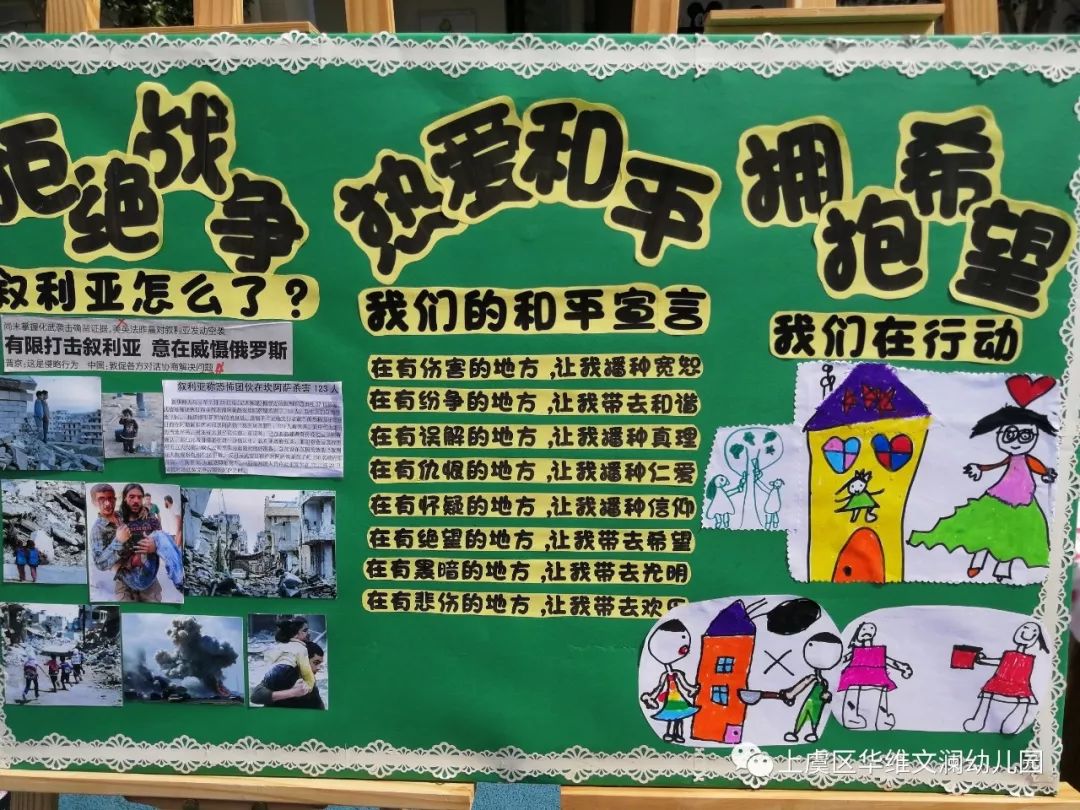 拒绝战争
热爱和平
拥抱希望
叙利亚怎么了？
我们的和平宣言
我们在行动
尚未掌握化武袭击确凿证据，美英法昨晨对叙利亚发动空袭
有限打击叙利亚 意在威慑俄罗斯
普京：这是侵略行为 中国：敦促各方对话协商解决问题
叙利亚称恐怖团伙在坎阿萨杀害 123 人
在有伤害的地方，让我播种宽恕
在有纷争的地方，让我带去和谐
在有误解的地方，让我播种真理
在有仇恨的地方，让我播种仁爱
在有怀疑的地方，让我播种信仰
在有绝望的地方，让我带去希望
在有黑暗的地方，让我带去光明
在有悲伤的地方，让我带去欢
上虞区华维文澜幼儿园